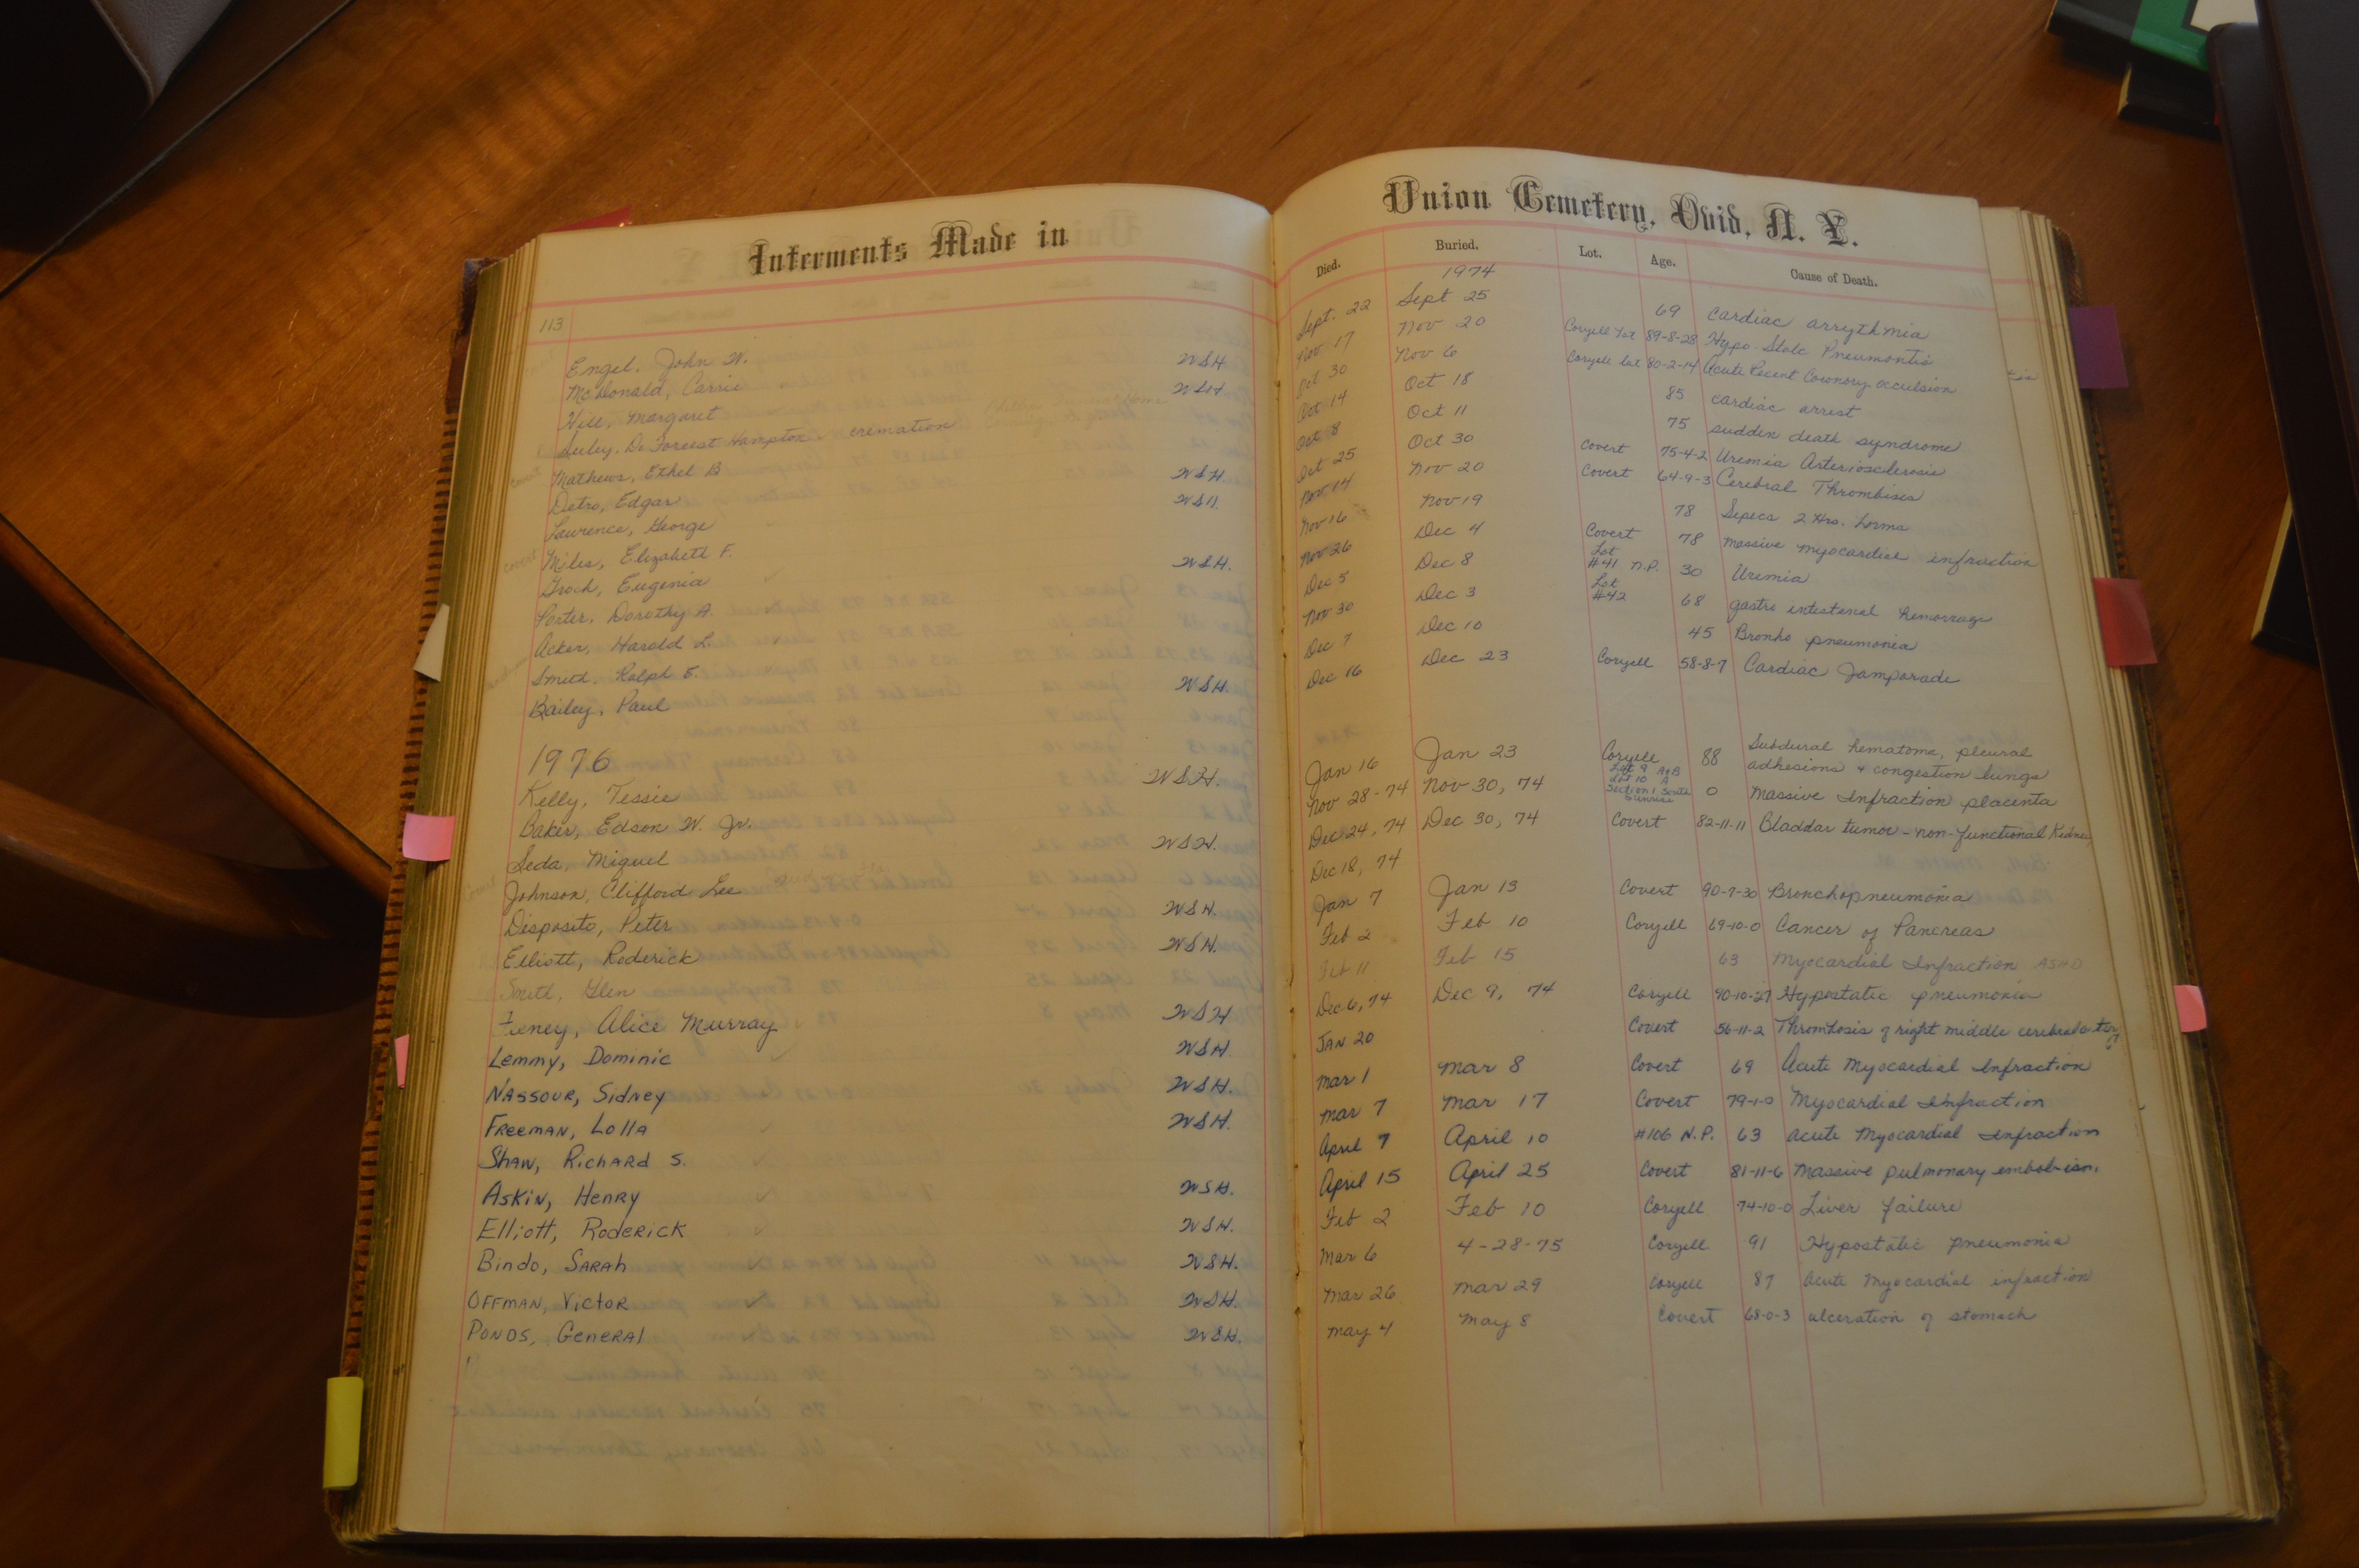 Interments Made in
113
Engel, John W.
McDonald, Carrie WSH
Hill, Margaret WSH
Seeley, De Forrest Hampton cremation
Mathews, Ethel B
Detro, Edgar WSH
Laurence, George WSH
Miles, Elizabeth F.
Groch, Eugenia WSH.
Porter, Dorothy A.
Acker, Harold L.
Smith, Ralph E.
Bailey, Paul WSH.
1976
Kelly, Tessie WSH.
Baker, Edson W. Jr.
Seda, Miguel WSH.
Johnson, Clifford Lee
Disposito, Peter WSH.
Elliott, Roderick WSH.
Smith, Glen
Feney, Alice Murray WSH
Lemmy, Dominic WSH.
Nassour, Sidney WSH.
Freeman, Lolla WSH.
Shaw, Richard S.
Askin, Henry WSH.
Elliott, Roderick WSH.
Bindo, Sarah WSH.
Offman, Victor WSH.
Ponds, General WSH.
Union Cemetery, Ovid, N. Y.
Died. Buried. Lot. Age. Cause of Death.
1974
Sept. 22 Sept 25 69 Cardiac arrythmia
Nov 17 Nov 20 Coryell Lot 89-8-28 Hypo-Static Pneumontis
Oct 30 Nov 6 Coryell Lot 80-2-14 Acute Recent Coronary occulsion
Oct 14 Oct 18 85 cardiac arrest
Oct 8 Oct 11 75 sudden death syndrome
Oct 25 Oct 30 Covert 75-4-2 Uremia Arteriosclerosis
Nov 14 Nov 20 Covert 64-9-3 Cerebral Thrombises
Nov 16 Nov 19 78 2 Hrs.
Nov 26 Dec 4 Covert 78 massive myocardial infraction
Dec 5 Dec 8 Lot #41 N.P. 30 Uremia
Nov 30 Dec 3 Lot #42 68 gastro intestenal hemorrage
Dec 7 Dec 10 45 Bronho pneumonia
Dec 16 Dec 23 Coryell 58-8-7 Cardiac Jamporade
Jan 16 Jan 23 Coryell 88 Subdural hematoma, pleural
adhesions & congestion lungs
Nov 28-74 Nov 30, 74 Lot 9 A+B Lot 10 A Section 1 South Sunrise 0 Massive Infraction placenta
Dec 24, 74 Dec 30, 74 Covert 82-11-11 Bladdar tumor - non-functional Kidney
Dec 18, 74
Jan 7 Jan 13 Covert 90-7-30 Bronchopneumonia
Feb 2 Feb 10 Coryell 69-10-0 Cancer of Pancreas
Feb 11 Feb 15 63 Myocardial Infraction ASHD
Dec 6, 74 Dec 9, 74 Coryell 90-10-27 Hypostatic pneumonia
Jan 20 Covert 56-11-2 Thrombosis of right middle cerebral artery
Mar 1 Mar 8 Covert 69 Acute Myocardial Infraction
Mar 7 Mar 17 Covert 79-1-0 Myocardial Infraction
April 7 April 10 #106 N.P. 63 acute Myocardial Infraction
April 15 April 25 Covert 81-11-6 Massive pulmonary embolism.
Feb 2 Feb 10 Coryell 74-10-0 Liver failure
Mar 6 4-28-75 Coryell 91 Hypostatic pneumonia
Mar 26 Mar 29 Coryell 87 Acute Myocardial infraction
May 4 May 8 Covert 68-0-3 ulceration of stomach